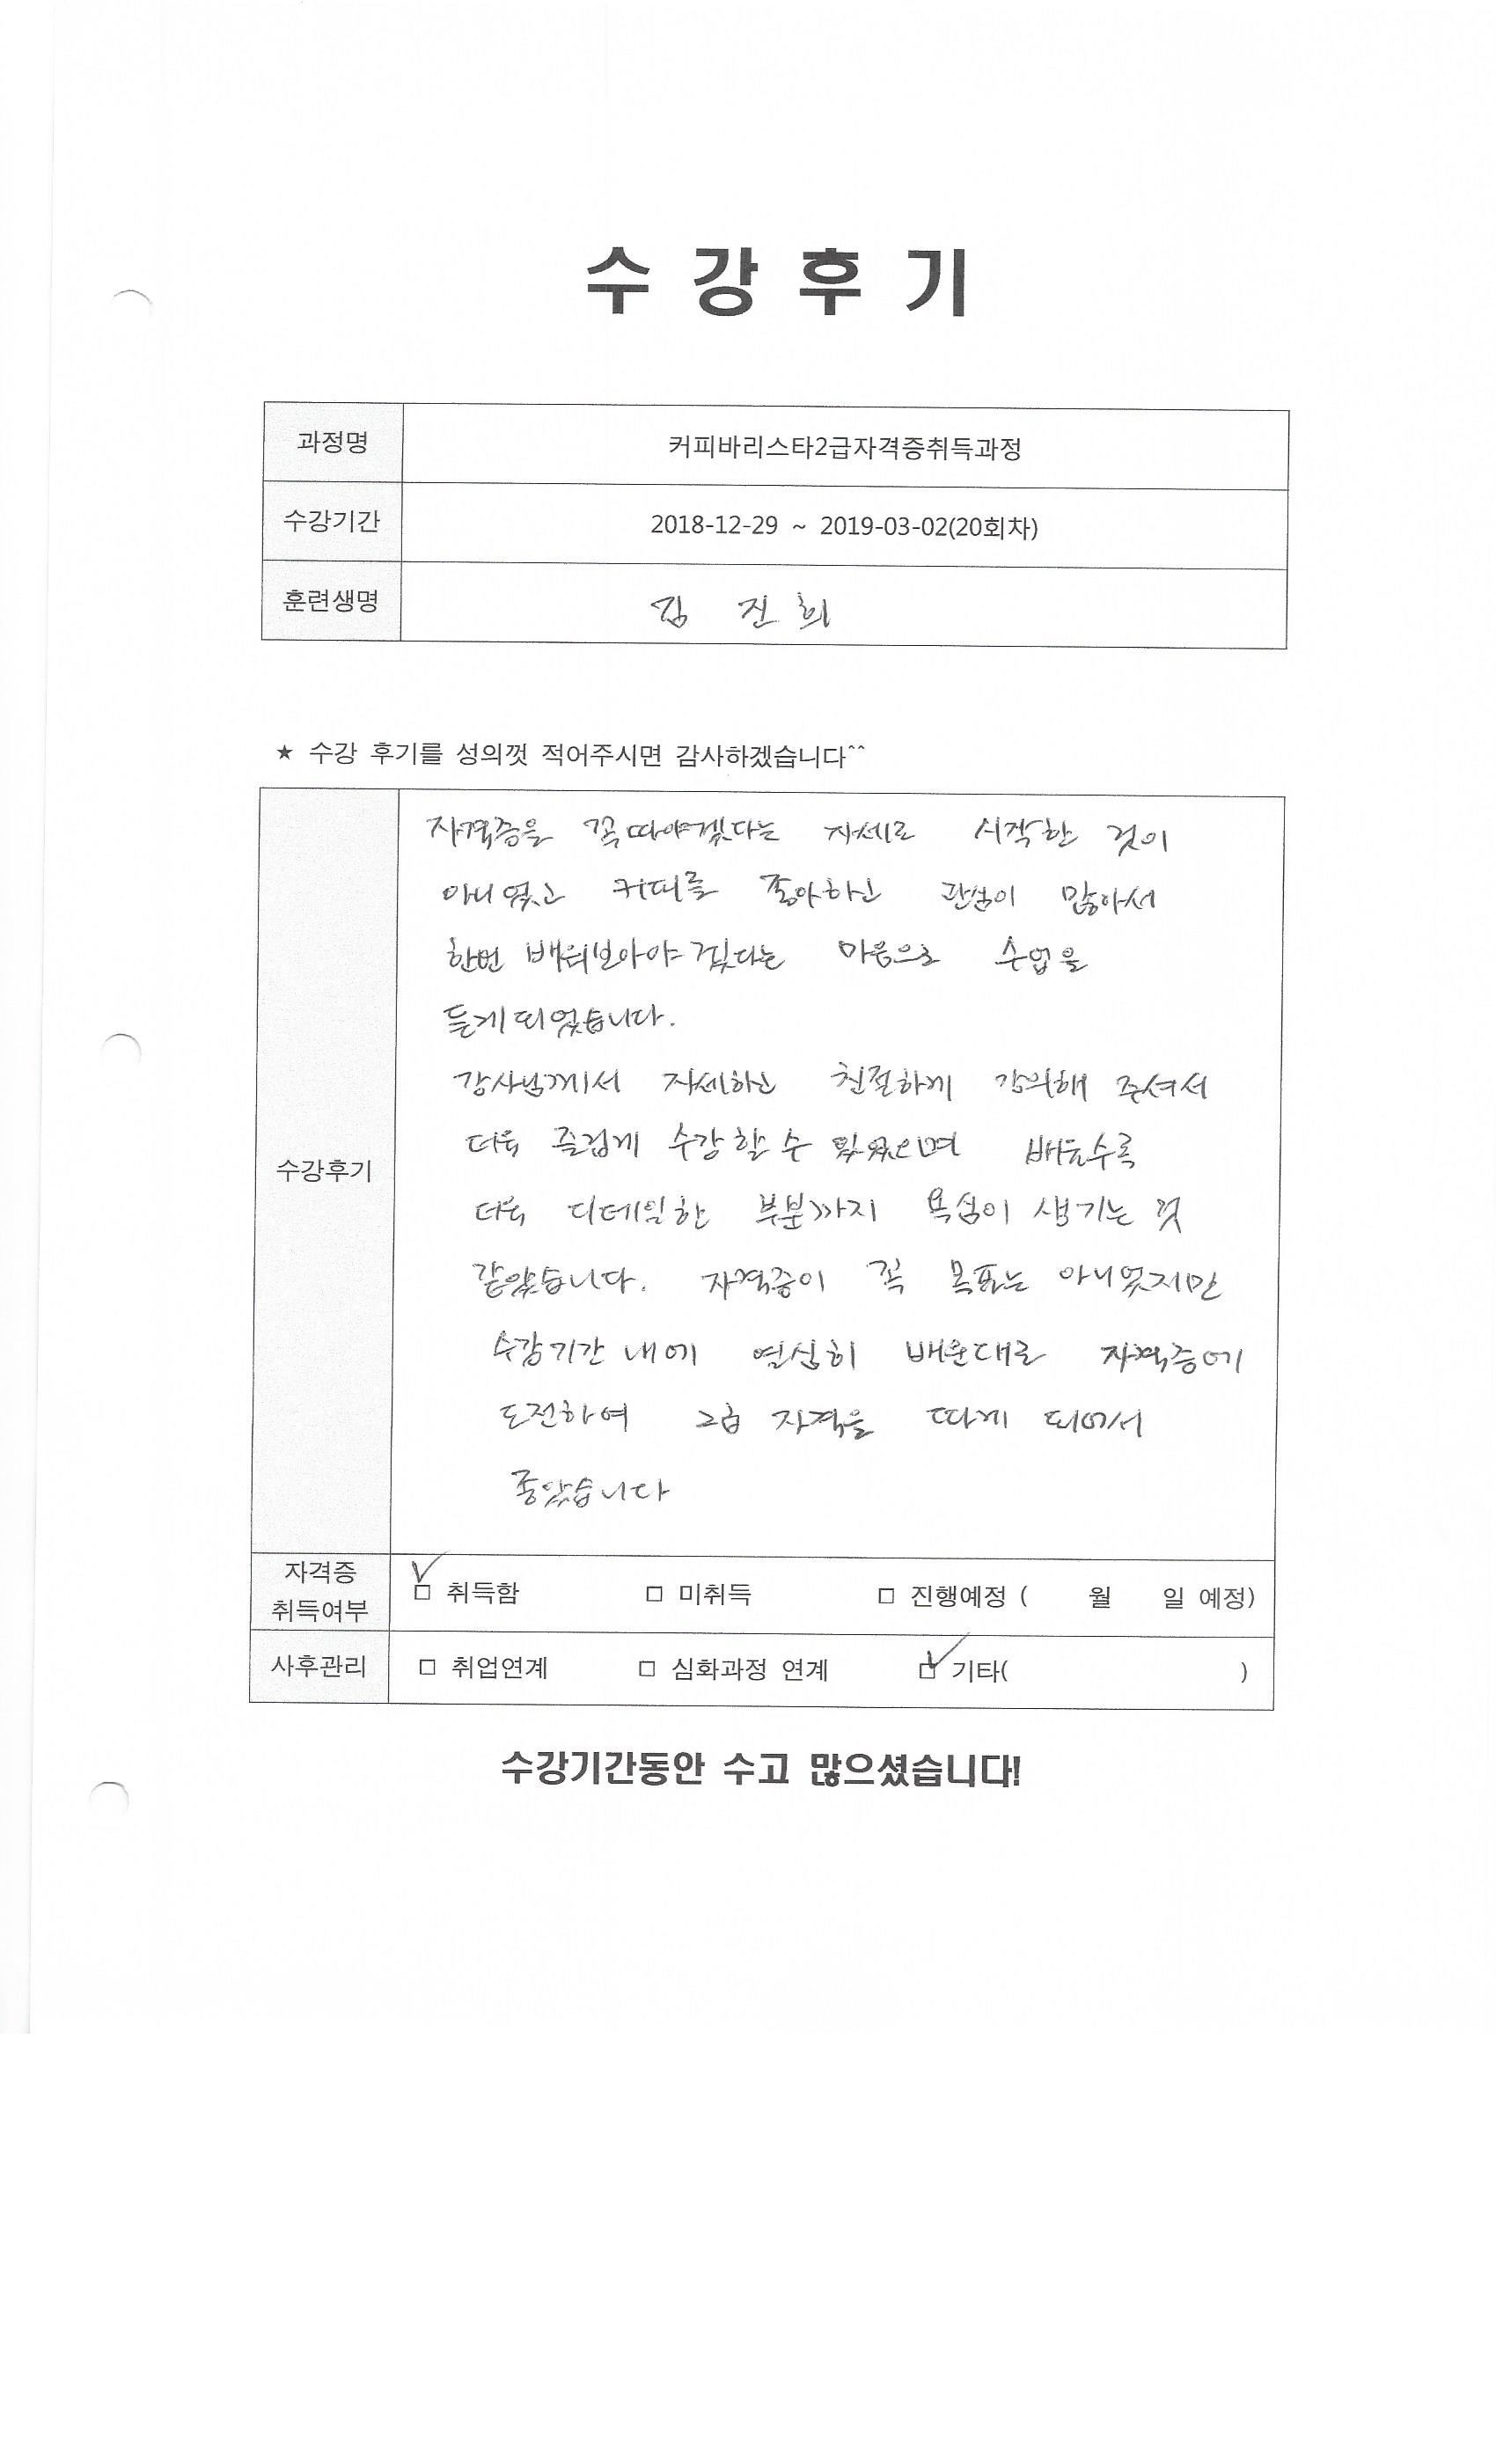 수 강 후 기
과정명 커피바리스타2급자격증취득과정
수강기간 2018-12-29 ~ 2019-03-02(20회차)
훈련생명 김 진 희
★ 수강 후기를 성의껏 적어주시면 감사하겠습니다^^
수강후기
자격증을 꼭 따야겠다는 자세로 시작한 것이
아니었고 커피를 좋아하고 관심이 많아서
한번 배워보아야겠다는 마음으로 수업을
듣게 되었습니다.
강사님께서 자세하고 친절하게 강의해 주셔서
더욱 즐겁게 수강할 수 있었으며 배울수록
더욱 디테일한 부분까지 욕심이 생기는 것
같았습니다. 자격증이 꼭 목표는 아니었지만
수강기간 내에 열심히 배운대로 자격증에
도전하여 2급 자격을 따게 되어서
좋았습니다
자격증
취득여부
□ 취득함 □ 미취득 □ 진행예정 ( 월 일 예정)
사후관리 □ 취업연계 □ 심화과정 연계 □ 기타( )
수강기간동안 수고 많으셨습니다!